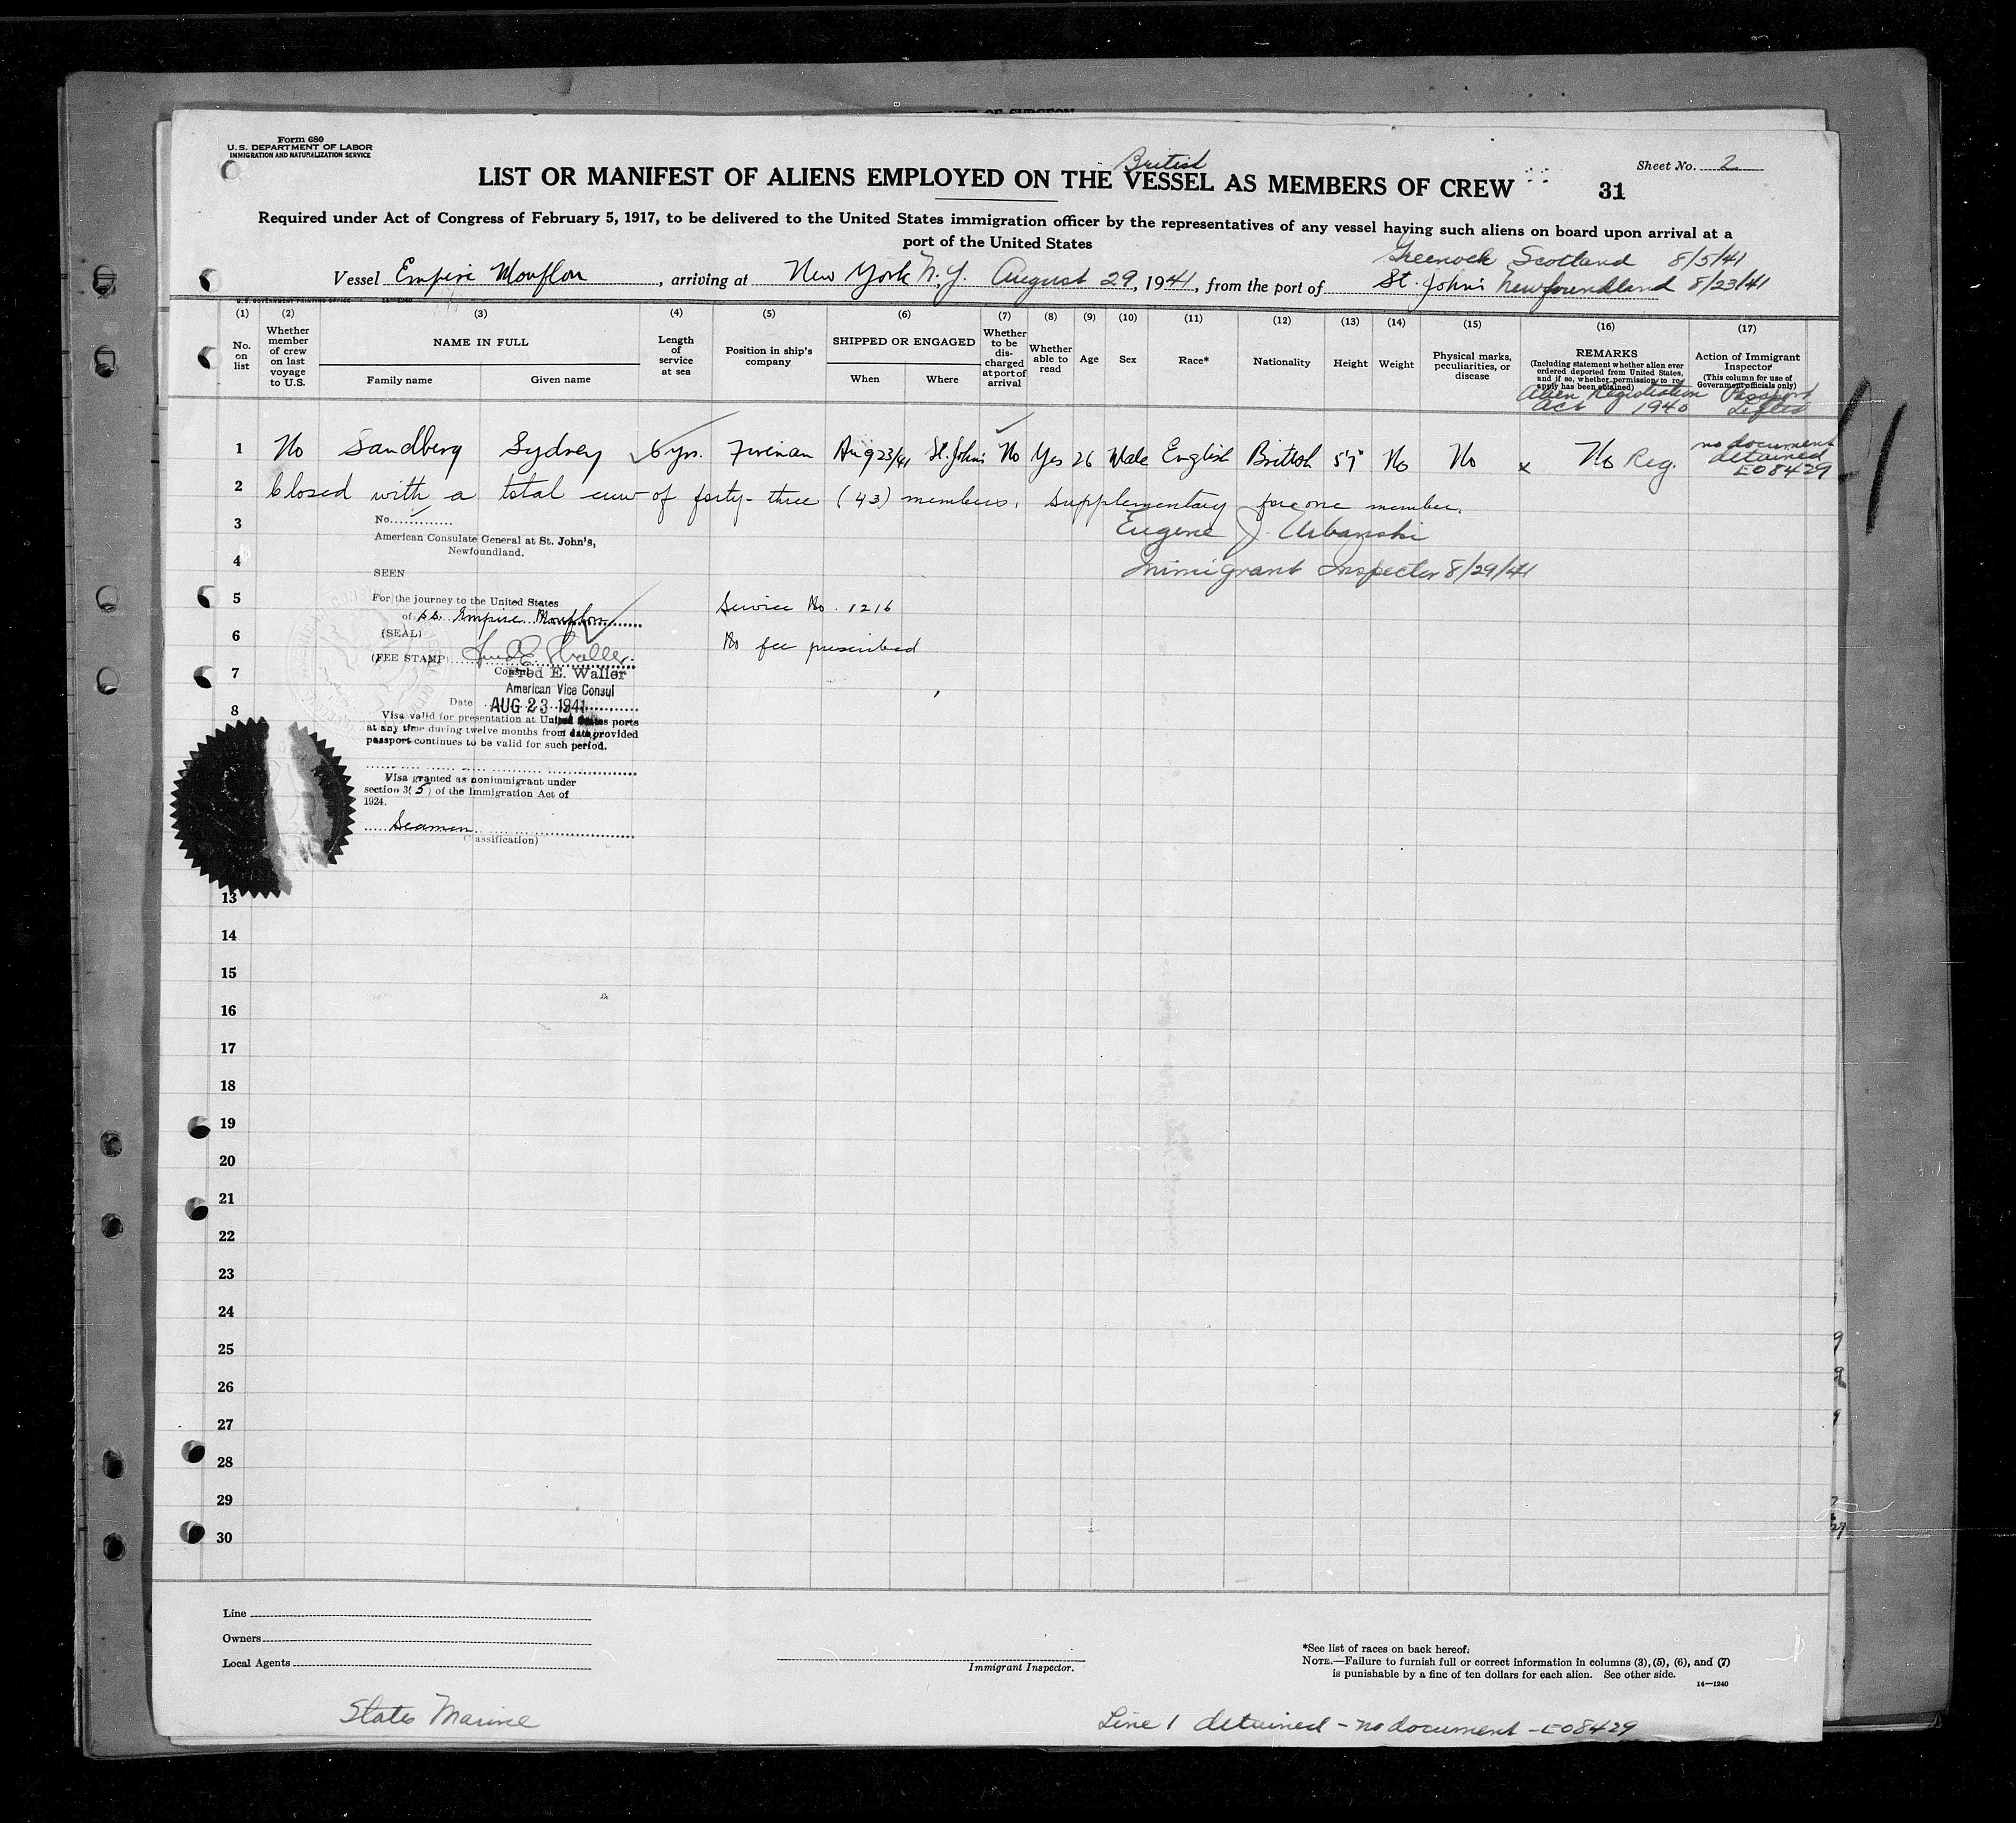 Form 680
U.S. DEPARTMENT OF LABOR
IMMIGRATION AND NATURALIZATION SERVICE
Sheet No. 2
British
LIST OR MANIFEST OF ALIENS EMPLOYED ON THE VESSEL AS MEMBERS OF CREW
31
Required under Act of Congress of February 5, 1917, to be delivered to the United States immigration officer by the representatives of any vessel having such aliens on board upon arrival at a
port of the United States
Greenock Scotland 8/5/41
Vessel Empire Mouflon, arriving at New York N.Y. August 29, 1941, from the port of St. John's Newfoundland 8/23/41
(1) (2) (3) (4) (5) (6) (7) (8) (9) (10) (11) (12) (13) (14) (15) (16) (17)
No. on list
Whether member of crew on last voyage to U.S.
NAME IN FULL
Family name
Given name
Length of service at sea
Position in ship's company
SHIPPED OR ENGAGED
When
Where
Whether to be discharged at port of arrival
Whether able to read
Age
Sex
Race*
Nationality
Height
Weight
Physical marks, peculiarities, or disease
REMARKS
(Including statement whether alien ever ordered deported from United States, and if so, whether permission to reapply has been obtained)
Alien Registration Act 1940
Action of Immigrant Inspector
(This column for use of Government officials only)
Passport Lifted
1 No Sandberg Sydney 6 yrs. Fireman Aug 23/41 St. John's No Yes 26 Male English British 5'7" No No x No Reg. no document detained E08429
2 Closed with a total crew of forty-three (43) members. Supplementary for one member.
3
Eugene J. Urbanski
4
Immigrant Inspector 8/29/41
No.
American Consulate General at St. John's,
Newfoundland.
SEEN
5
For the journey to the United States
Service No. 1216
of s.s. Empire Mouflon
6
(SEAL)
No fee prescribed
(FEE STAMP) Fred E. Waller
7
Fred E. Waller
American Vice Consul
Date AUG 23 1941
8
Visa valid for presentation at United States ports
at any time during twelve months from date provided
passport continues to be valid for such period.
Visa granted as nonimmigrant under
section 3(5) of the Immigration Act of
1924.
Seamen
Classification)
13
14
15
16
17
18
19
20
21
22
23
24
25
26
27
28
29
30
Line
Owners
Local Agents
Immigrant Inspector.
*See list of races on back hereof.
NOTE.—Failure to furnish full or correct information in columns (3), (5), (6), and (7)
is punishable by a fine of ten dollars for each alien. See other side.
14—1240
States Marine
Line 1 detained - no document - E08429